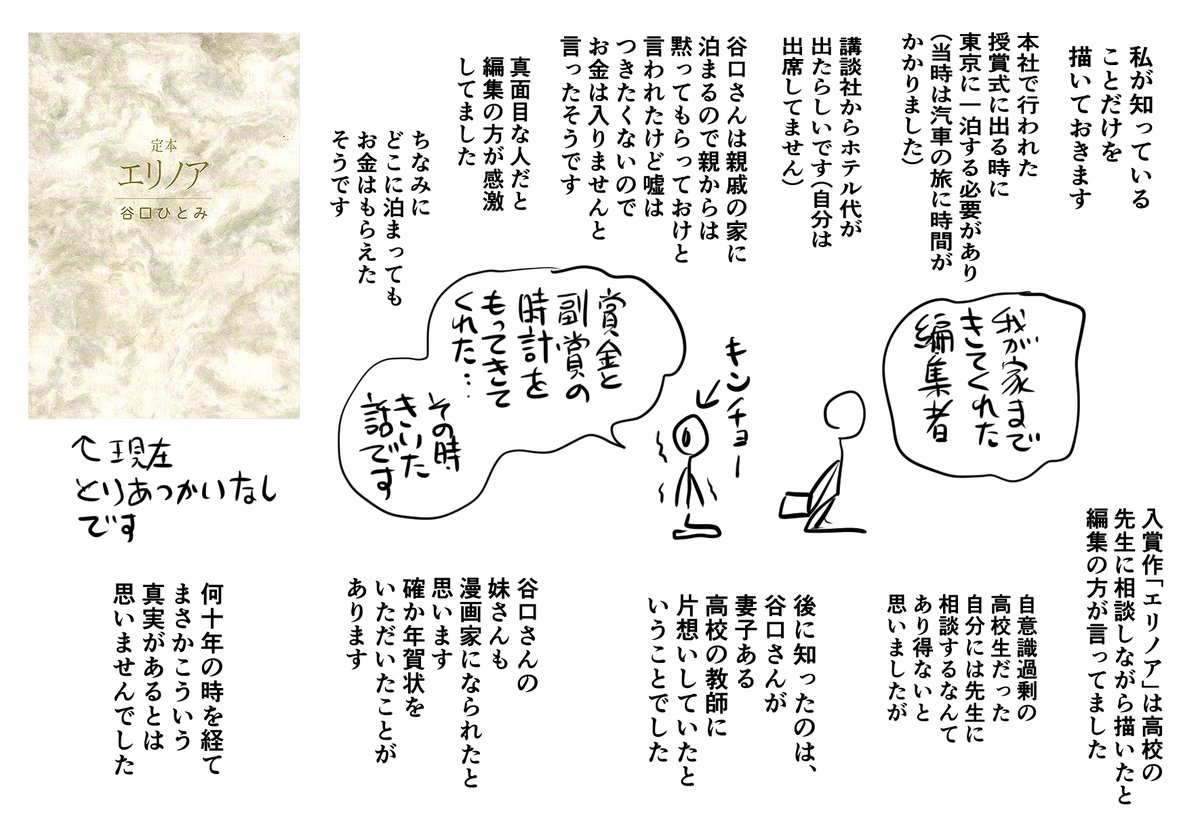 私が知っている
ことだけを
描いておきます
本社で行われた
授賞式に出る時に
東京に一泊する必要があり
(当時は汽車の旅に時間が
かかりました)
講談社からホテル代が
出たらしいです(自分は
出席してません)
谷口さんは親戚の家に
泊まるので親からは
黙ってもらっておけと
言われたけど嘘は
つきたくないので
お金は入りませんと
言ったそうです
真面目な人だと
編集の方が感激
してました
ちなみに
どこに泊まっても
お金はもらえた
そうです
定本
エリノア
谷口ひとみ
↑現在
とりあつかいなし
です
我が家まで
きてくれた
編集者
キンチョー
賞金と
副賞の
時計を
もってきて
くれた…
その時
きいた
話です
入賞作「エリノア」は高校の
先生に相談しながら描いたと
編集の方が言ってました
自意識過剰の
高校生だった
自分には先生に
相談するなんて
あり得ないと
思いましたが
後に知ったのは、
谷口さんが
妻子ある
高校の教師に
片想いしていたと
いうことでした
谷口さんの
妹さんも
漫画家になられたと
思います
確か年賀状を
いただいたことが
あります
何十年の時を経て
まさかこういう
真実があるとは
思いませんでした